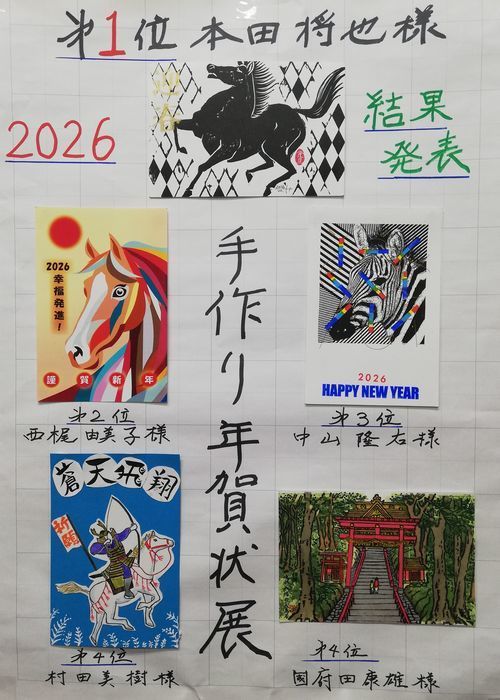 第1位 本田将也様
2026
迎春
結果
発表
手作り年賀状展
2026
幸福発進!
謹賀新年
第2位
西梶由美子様
2026
HAPPY NEW YEAR
第3位
中山隆右様
蒼天飛翔
祈願
第4位
村田美樹様
第4位
國府田康雄様